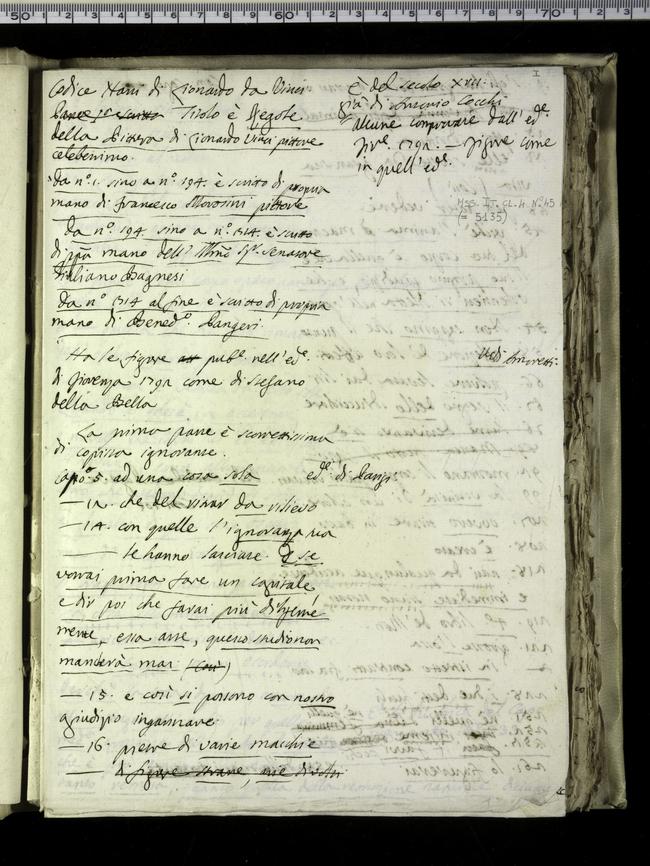 I
Codice Nani di Lionardo da Vinci
Titolo è Regole
della Pittura di Lionardo Vinci pittore
celeberrimo.
da n.º 1. sino a nº 194. è scritto di propria
mano di Francesco Morosini pittore
da nº. 194 sino a nº. 1314. è scritto
di ppa mano dell' Sr. Senatore
Giuliano Bagnesi
da nº 1314 al fine è scritto di propria
mano di Benedº. Pangeri.
Ha le figure pubb. nell'edᵉ.
di Fiorenza 1792 come di Stefano
della Bella
La prima parte è scorrettissima
di copista ignorante.
capº. 5. ad una cosa sola
— 12. che del da rilievo
— 14. con quelle l'ignoranza
— te hanno lasciare. E se
vorrai prima fare un capitale
e dir poi che farai più
mente, essa arte, questo studio non
mancherà mai
— 15. e così si possono con nostro
giudizio ingannare
— 16. pietre di varie macchie
— di figure strane, arie di volti
È del secolo XVII.
già di Antonio Cocchi
alcune comprovate dall'edᵉ.
Fir.ᵉ 1792. — figure come
in quell'edᵉ.
MSS. IT. CL. 4. N. 45
(= 5135)
Vedi Amoretti.
edᵉ. di Parigi